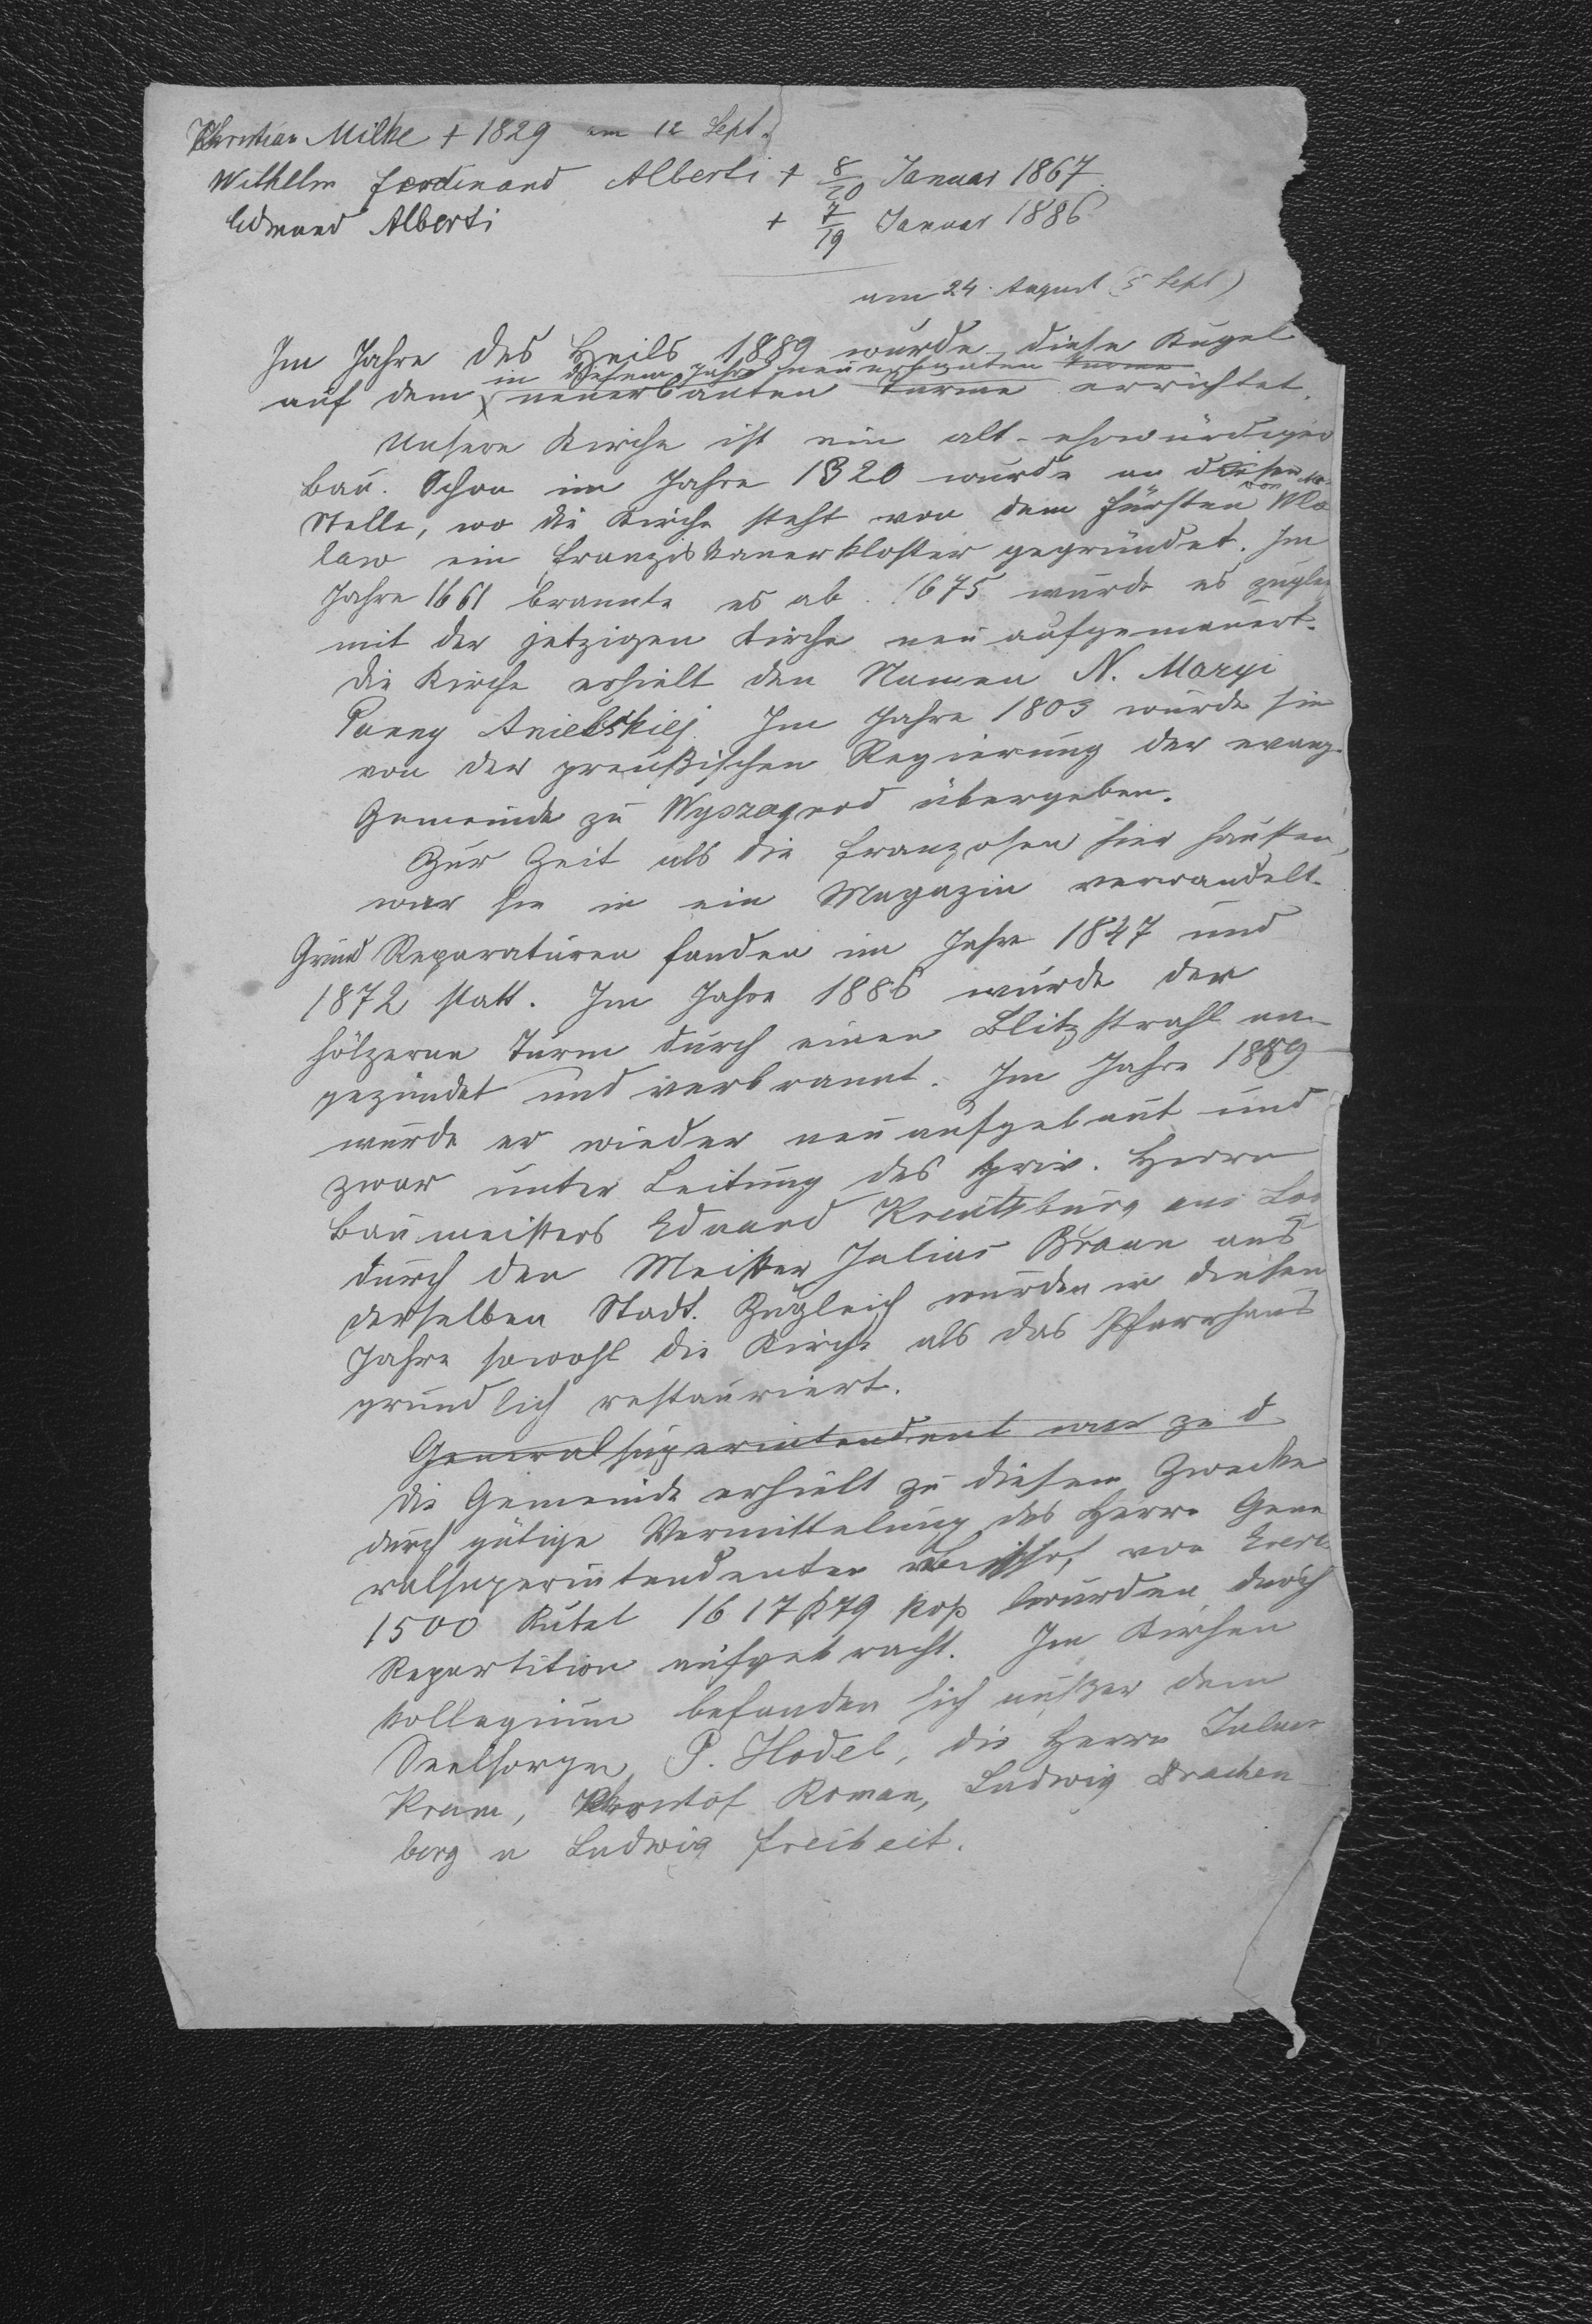 Christian Milke + 1829 am 12 Sept.
Wilhelm Ferdinand Alberti + 8/20 Januar 1867.
Edmund Alberti + 7/19 Januar 1886
am 24. August (5 Sept)
Im Jahre des Heils 1889 wurde diese Kugel
in diesem Jahre neuerbauten Turme
auf dem neuerbauten Turme errichtet.
Unsere Kirche ist ein alt-ehrwürdiger
Bau. Schon im Jahre 1320 wurde an dieser
Stelle, wo die Kirche steht von dem Fürsten von Wla
law ein Franziskanerkloster gegründet. Im
Jahre 1661 brannte es ab. 1675 wurde es zuglei
mit der jetzigen Kirche neu aufgemauert.
Die Kirche erhielt den Namen N. Maryi
Panny Anielskiej. Im Jahre 1803 wurde sie
von der preußischen Regierung der evang.
Gemeinde zu Wyszogrod übergeben.
Zur Zeit als die Franzosen hier hausten,
war sie in ein Magazin verwandelt.
Reparaturen fanden im Jahre 1847 und
1872 statt. Im Jahre 1886 wurde der
hölzerne Turm durch einen Blitzstrahl an-
gezündet und verbrannt. Im Jahre 1889
wurde er wieder neu aufgebaut und
zwar unter Leitung des Herrn
Baumeisters Eduard Kreutzburg aus
durch den Meister Julius Braun aus
derselben Stadt. Zugleich wurden in diesem
Jahre sowohl die Kirche als das Pfarrhaus
gründlich restauriert.
Generalsuperintendent war zu d
Die Gemeinde erhielt zu diesem Zwecke
durch gütige Vermittelung des Herrn Gene
ralsuperintendenten von
1500 Rubel 1617 79 Kop wurden durch
Repartition aufgebracht. Im Kirchen
kollegium befanden sich außer dem
Seelsorger, P. Hodel, die Herrn Julius
Kram, Roman, Ludwig Drachen
berg u Ludwig Freiheit.